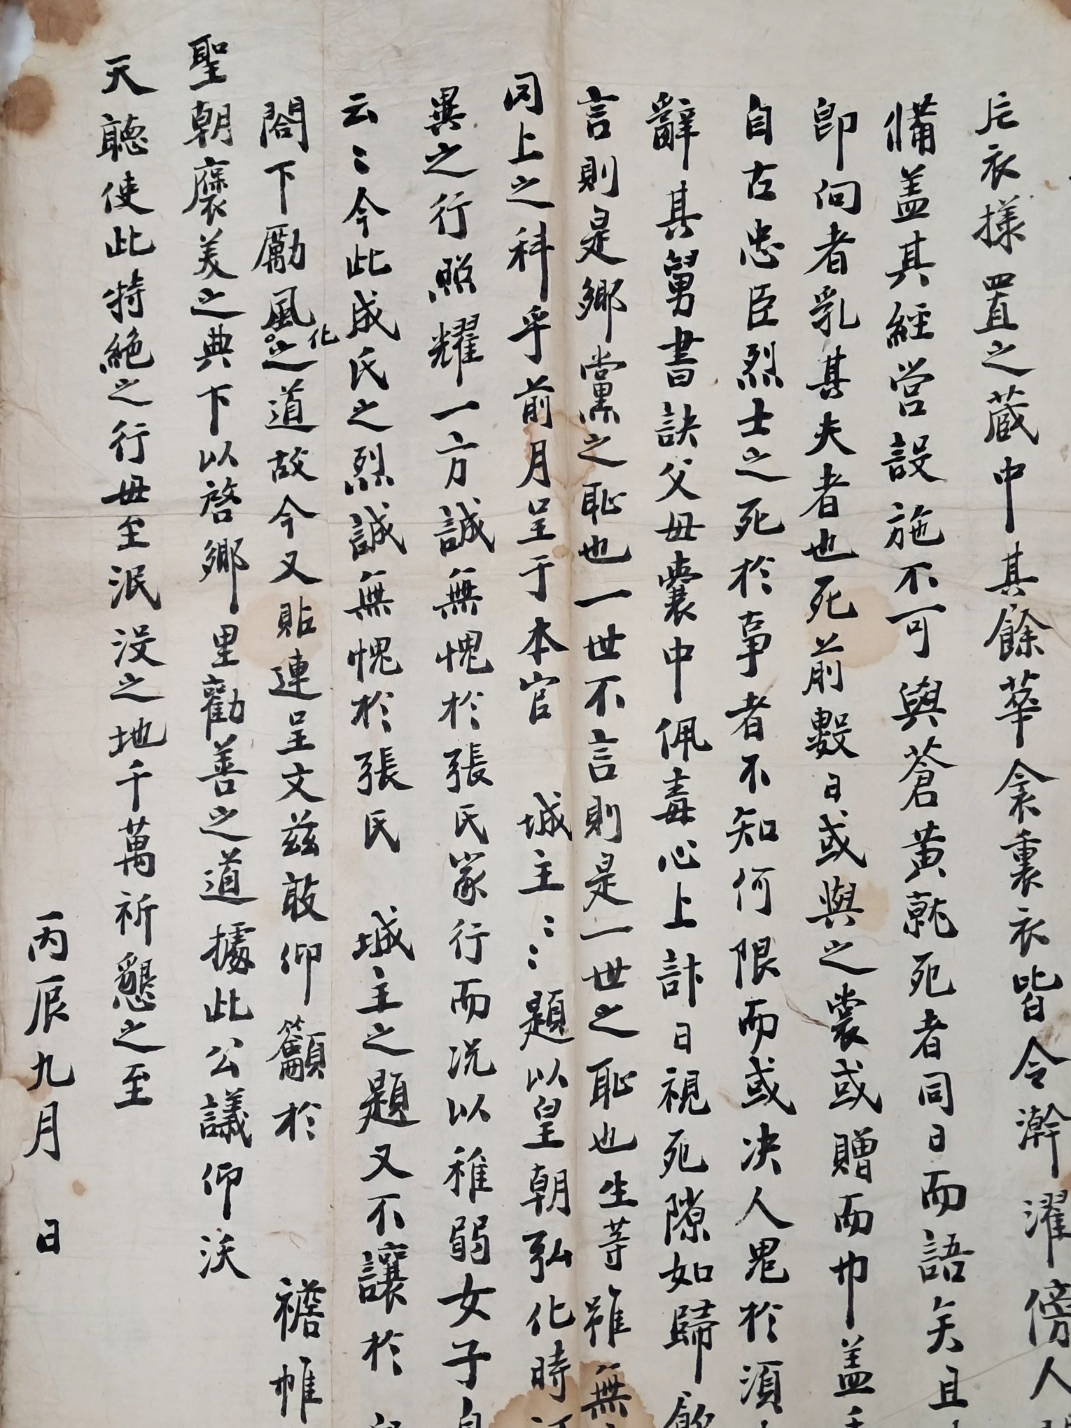 衣樣置之蔵中其餘華衾裏衣皆令澣濯傍人
備盖其經営設施不可與蒼黃就死者同日而語矣且
即问者乳其夫者也死前數日或與之裳或贈而巾盖
自古忠臣烈士之死於事者不知何限而或决人鬼於須
辭其舅書訣父母囊中佩毒心上計日視死隙如歸
言則是鄉黨之恥也一世不言則是一世之恥也生等雖無
同上之科乎前月呈于本官 城主〻〻題以皇朝弘化時
異之行照耀一方誠無愧於張氏家行而况以稚弱女子
云〻今此成氏之烈誠無愧於張氏 城主之題又不讓於
閤下勵風化之道故今又貼連呈文玆敢仰籲於 襜帷
聖朝褒美之典下以啓鄉里勸善之道據此公議仰沃
天聽使此特絶之行毋至泯没之地千萬祈懇之至
丙辰九月 日